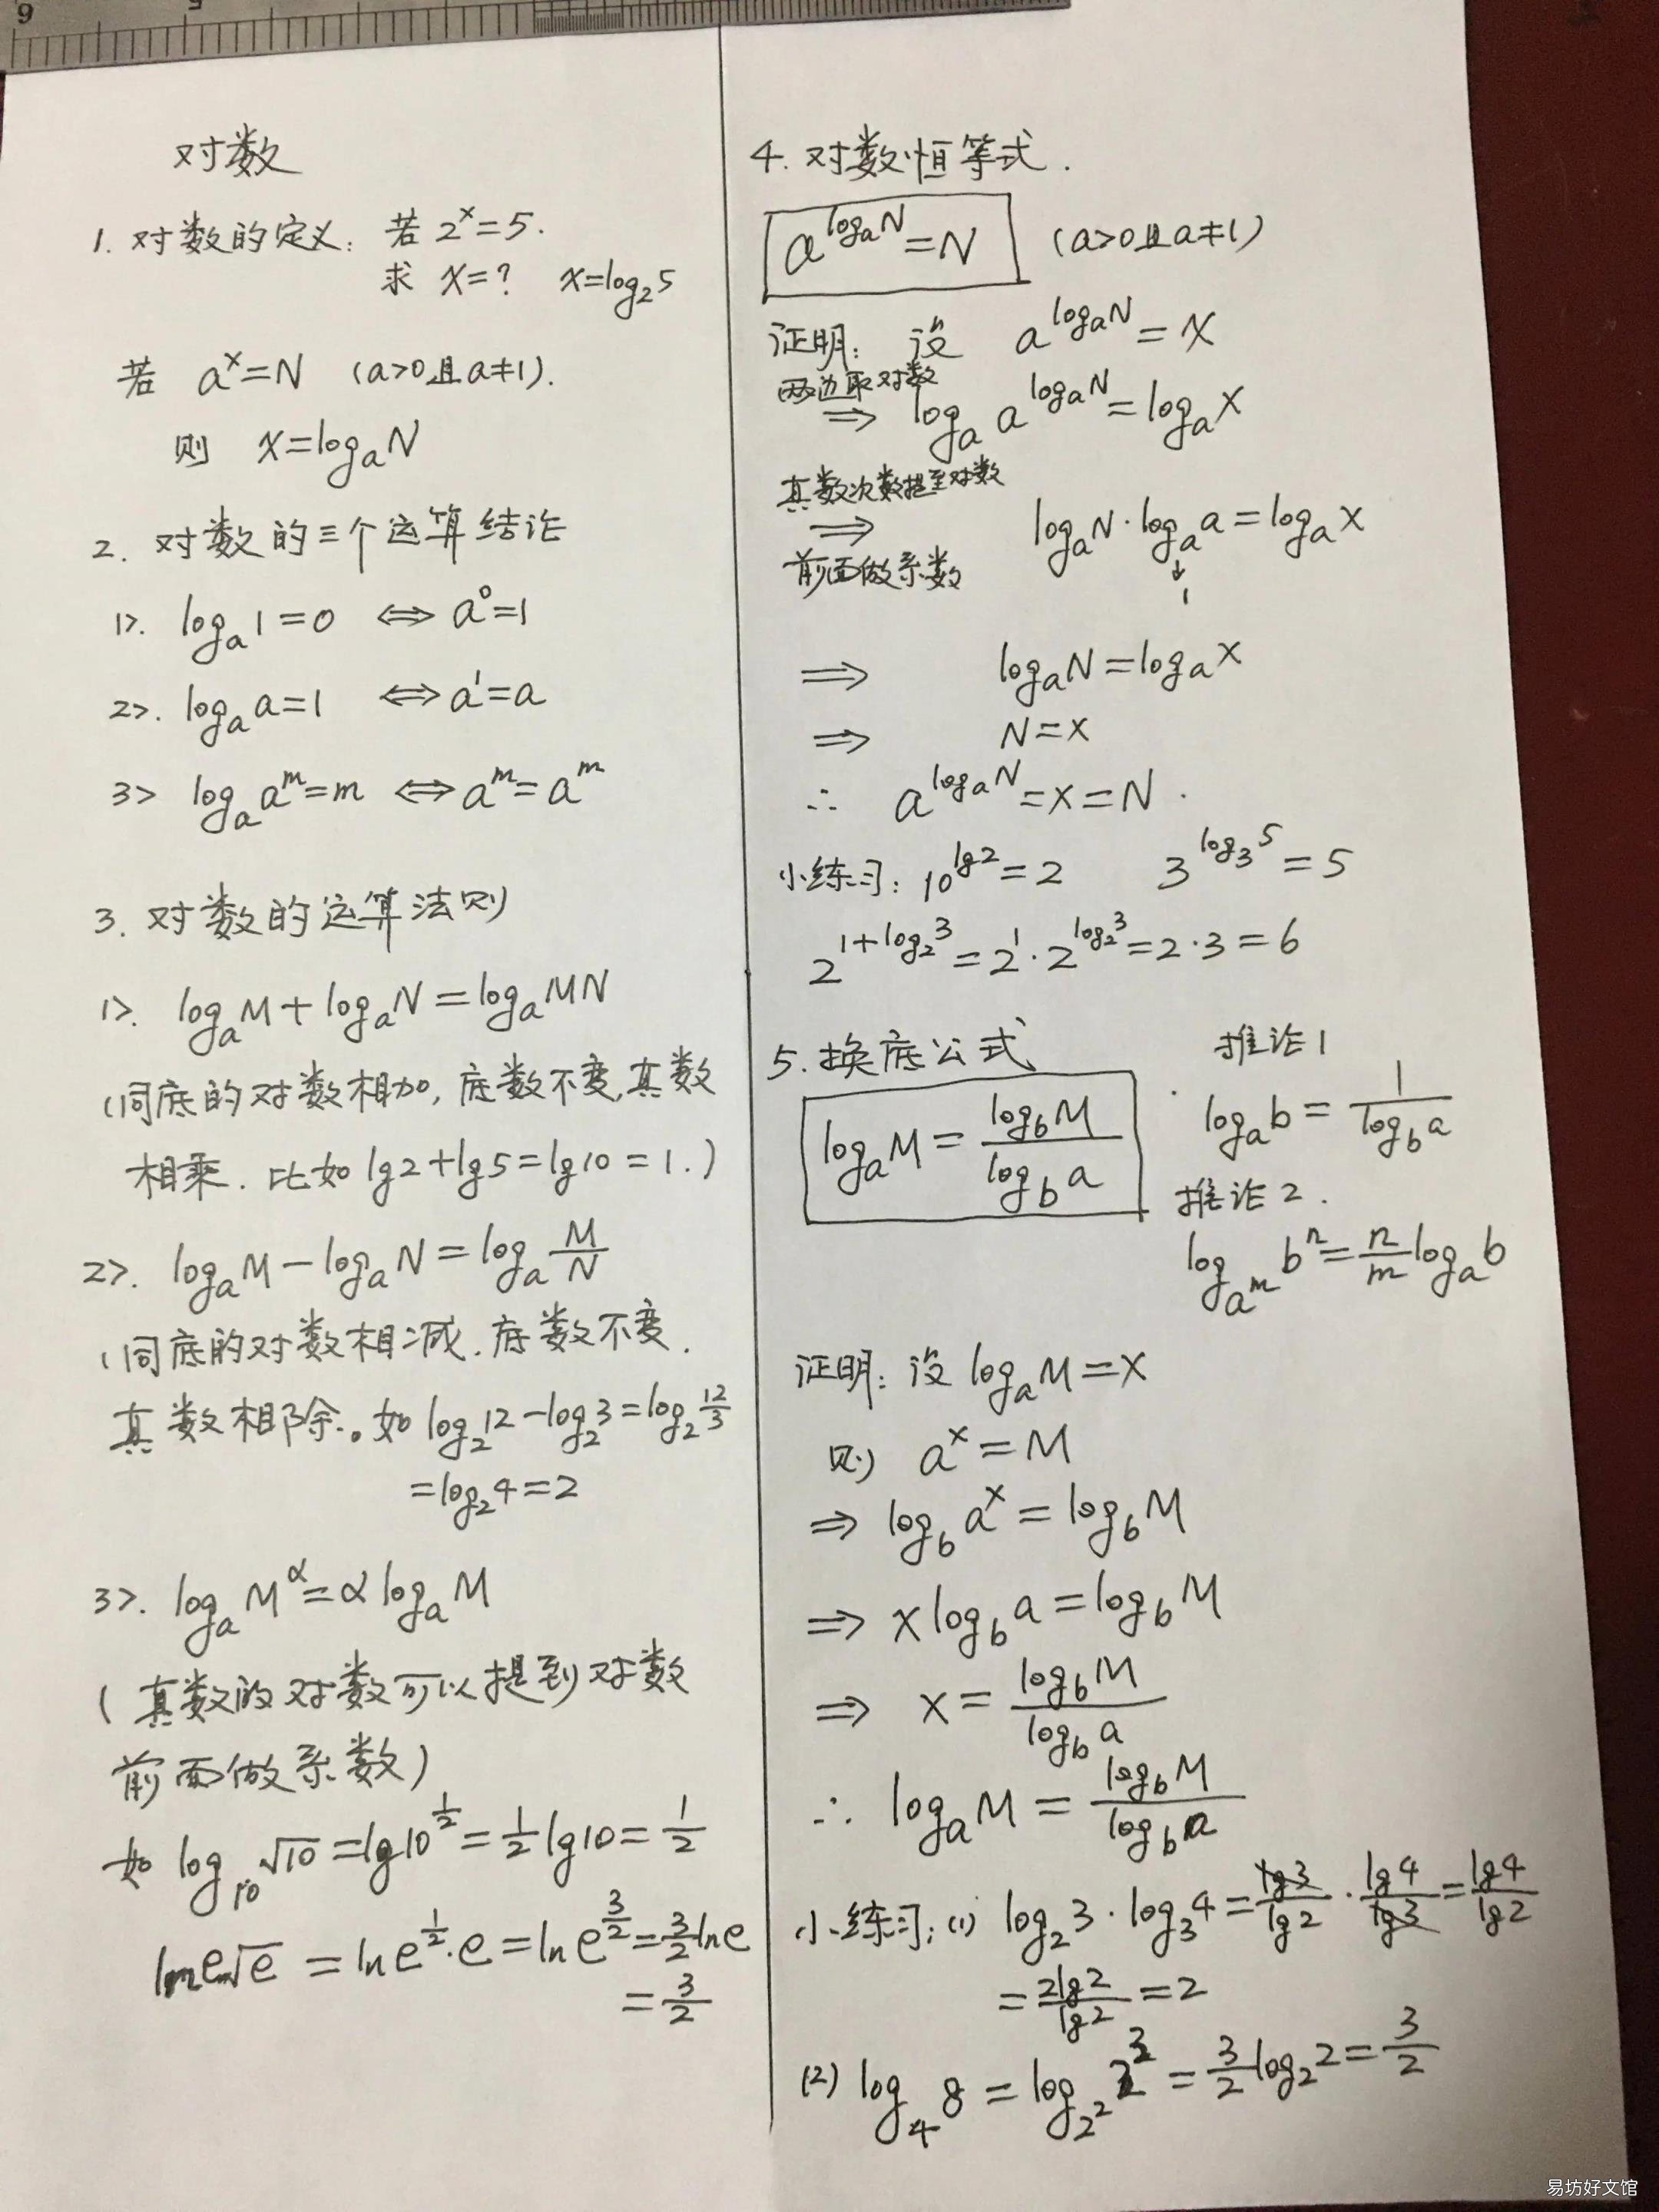 对数
1. 对数的定义: 若 2^x=5.
求 x=? x=log_2 5
若 a^x=N (a>0且a≠1).
则 x=log_a N
2. 对数的三个运算结论
1>. log_a 1=0 ⟺ a^0=1
2>. log_a a=1 ⟺ a^1=a
3> log_a a^m=m ⟺ a^m=a^m
3. 对数的运算法则
1>. log_a M+log_a N=log_a MN
(同底的对数相加, 底数不变, 真数
相乘. 比如 lg2+lg5=lg10=1.)
2>. log_a M-log_a N=log_a \frac{M}{N}
(同底的对数相减. 底数不变.
真数相除.。如 log_2 12-log_2 3=log_2 \frac{12}{3}
=log_2 4=2
3>. log_a M^α=α log_a M
(真数的对数可以提到对数
前面做系数)
如 log_{10} √10=lg10^{\frac{1}{2}}=\frac{1}{2}lg10=\frac{1}{2}
lne√e=lne^{\frac{1}{2}}·e=lne^{\frac{3}{2}}=\frac{3}{2}lne
=\frac{3}{2}
4. 对数恒等式.
a^{log_a N}=N (a>0且a≠1)
证明: 设 a^{log_a N}=x
两边取对数
⟹ log_a a^{log_a N}=log_a x
真数次数提至对数
⟹ log_a N·log_a a=log_a x
前面做系数 ↓
1
⟹ log_a N=log_a x
⟹ N=x
∴ a^{log_a N}=x=N.
小练习: 10^{lg2}=2 3^{log_3 5}=5
2^{1+log_2 3}=2^1·2^{log_2 3}=2·3=6
5. 换底公式
log_a M=\frac{log_b M}{log_b a}
推论1
log_a b=\frac{1}{log_b a}
推论2.
log_{a^m} b^n=\frac{n}{m}log_a b
证明: 设 log_a M=x
则 a^x=M
⟹ log_b a^x=log_b M
⟹ x log_b a=log_b M
⟹ x=\frac{log_b M}{log_b a}
∴ log_a M=\frac{log_b M}{log_b a}
小练习: (1) log_2 3·log_3 4=\frac{lg3}{lg2}·\frac{lg4}{lg3}=\frac{lg4}{lg2}
=\frac{2lg2}{lg2}=2
(2) log_4 8=log_{2^2} 2^3=\frac{3}{2}log_2 2=\frac{3}{2}
易坊好文馆